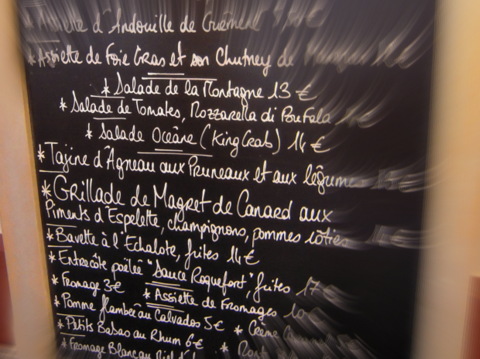 Assiette d'Andouille de Guémené
* Assiette de Foie Gras et son Chutney de
* Salade de la Montagne 13 €
* Salade de Tomates, Mozzarella di Boufala
* Salade Océane (King Crab) 14 €
* Tajine d'Agneau aux Pruneaux et aux légumes
* Grillade de Magret de Canard aux
Piments d'Espelette, champignons, pommes rôties
* Bavette à l'Echalote, frites 14 €
* Entrecôte poêlée "Sauce Roquefort", frites 17
* Fromage 3 € * Assiette de Fromages 10
* Pomme flambée au Calvados 5 € * Crème
* Petits Babas au Rhum 6 €
* Fromage Blanc au Miel